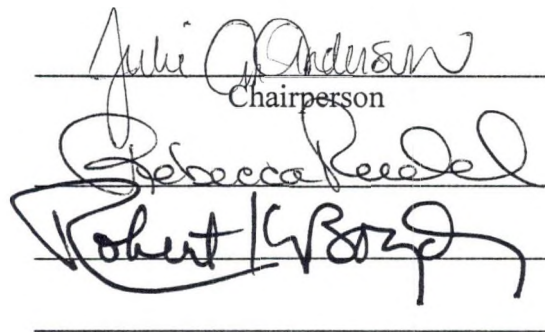 Julie A. Anderson
Chairperson
Rebecca Reedel
Robert K Boyd